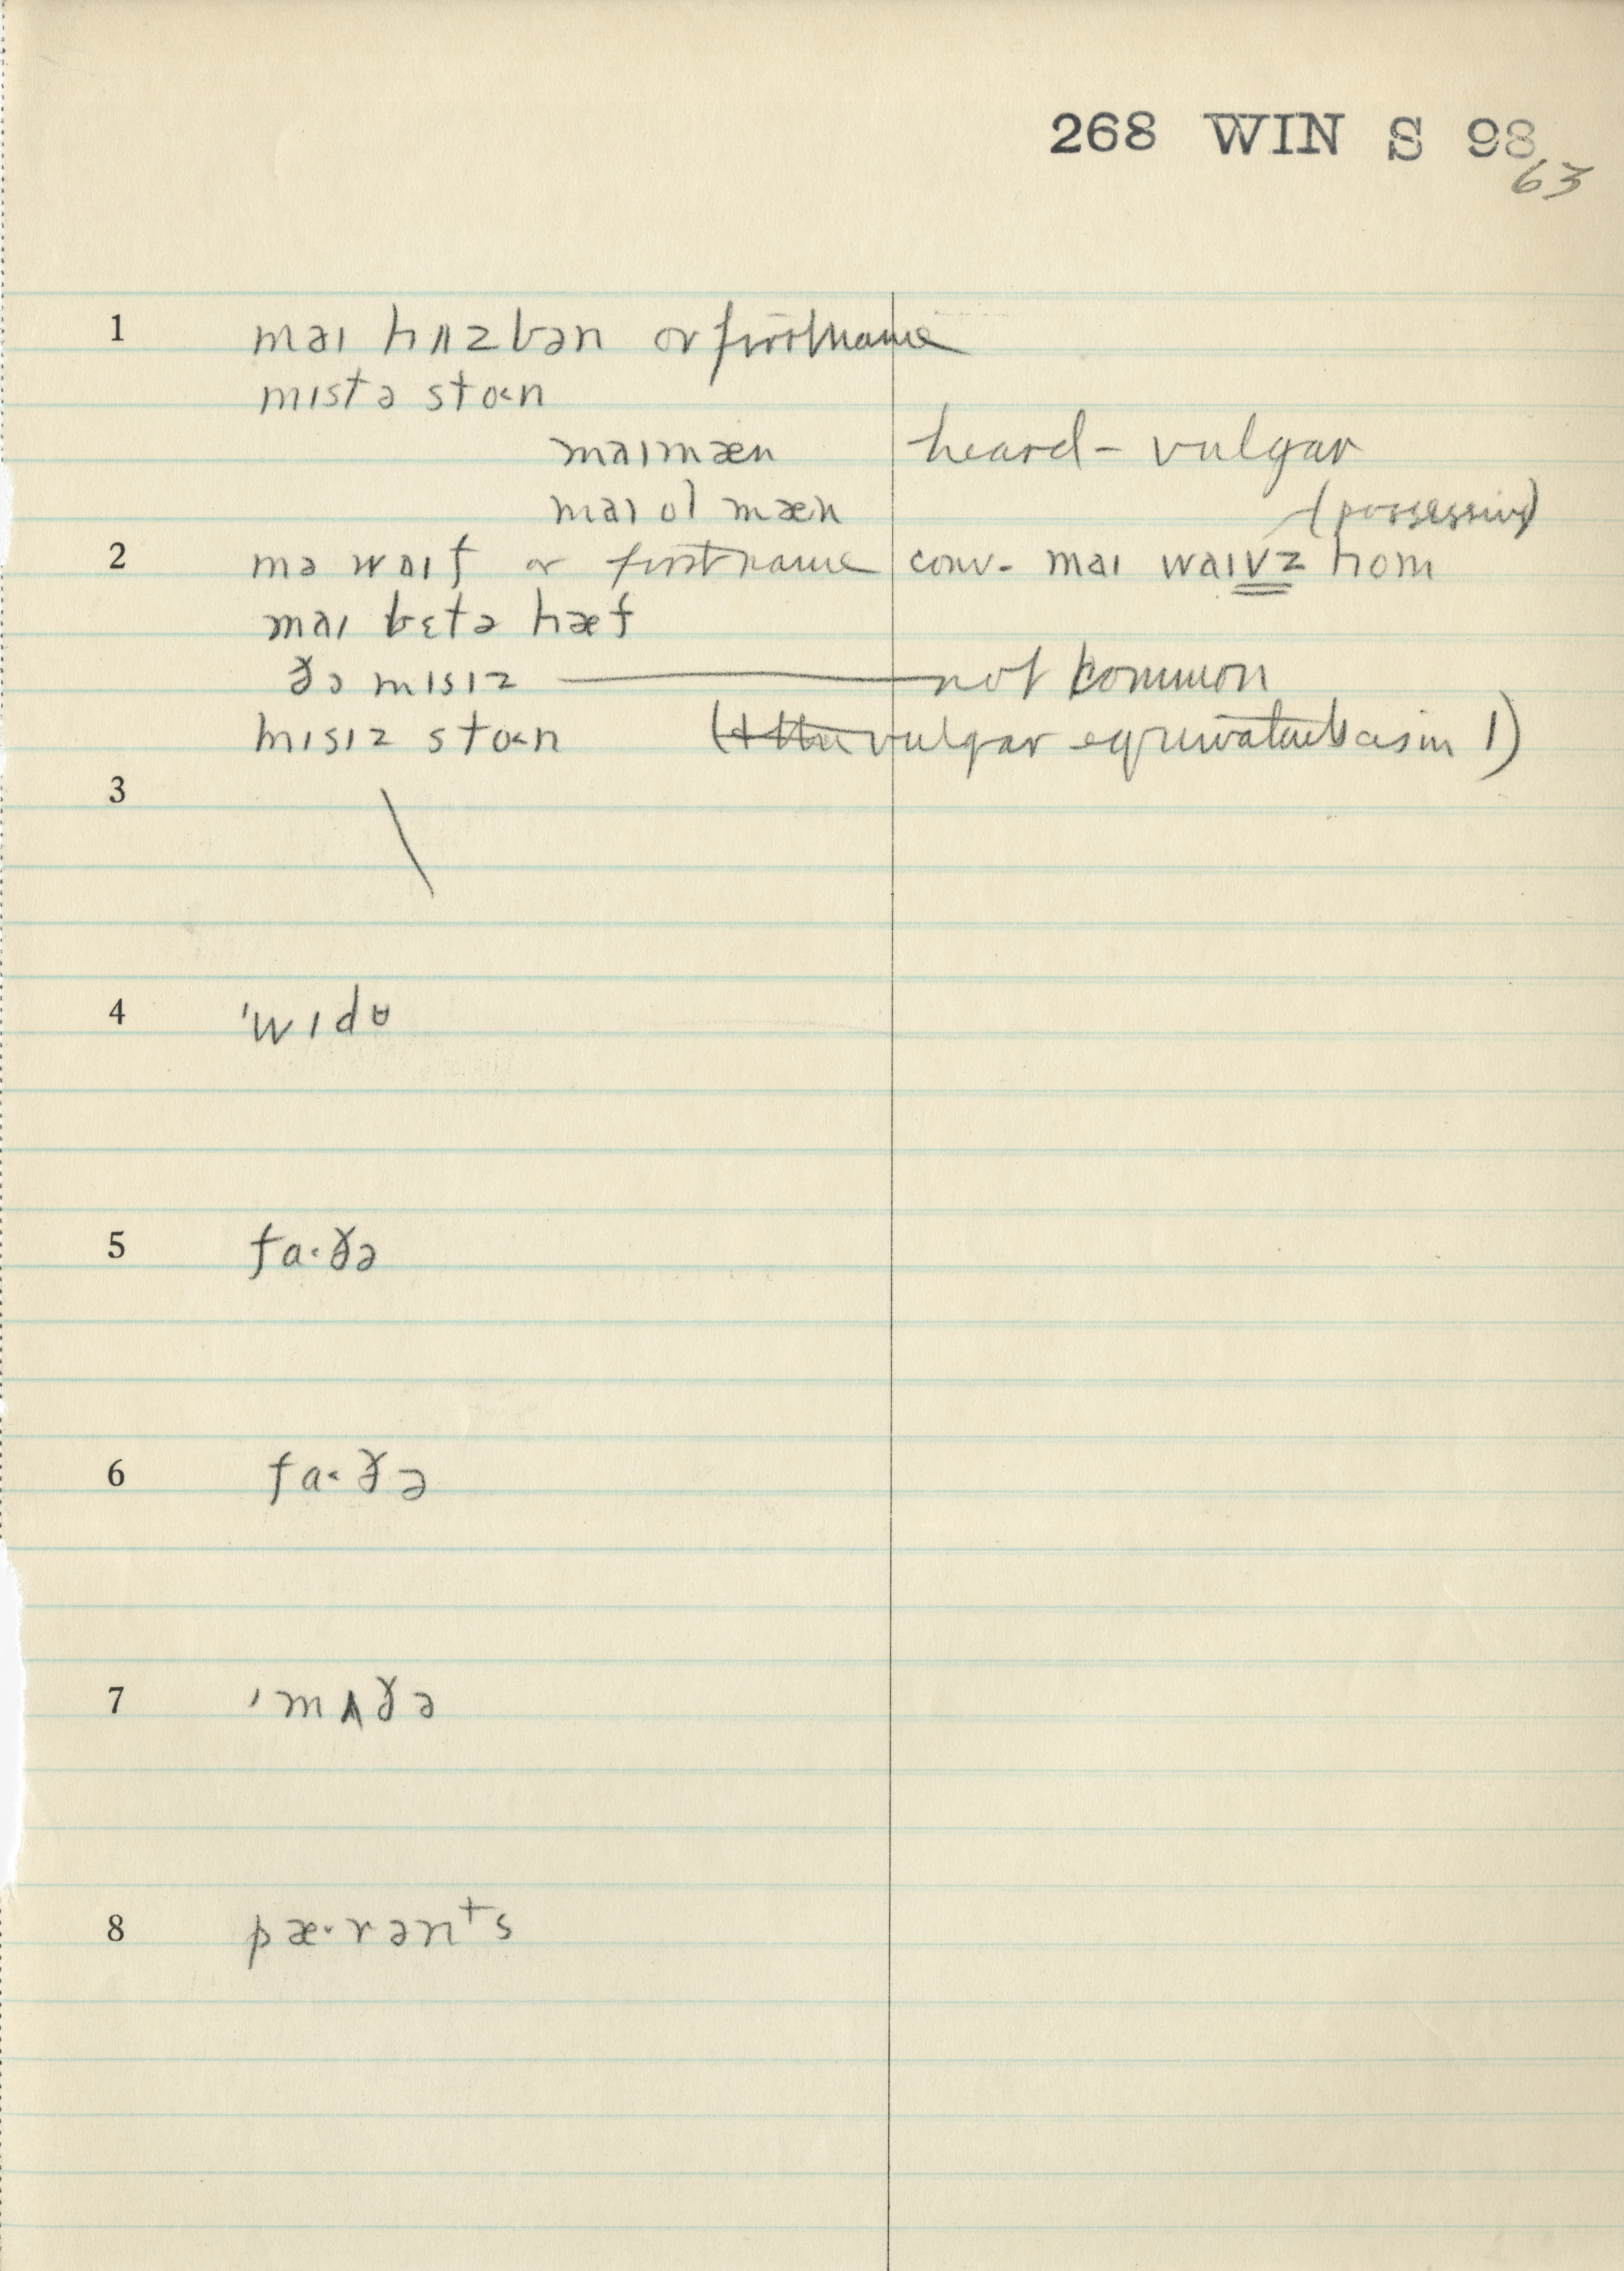 268 WIN S 98
63
1 maɪ hʌzbən or first name
mɪstə stoɐn
maɪmæn heard - vulgar
maɪ ol mæn (possessive)
2 mə waɪf or first name conv. maɪ waɪvz hom
maɪ bɛtə hæf
ðə mɪsɪz — not common
mɪsɪz stoɐn (+ the vulgar equivalents as in 1)
3 \
4 ˈwɪdɵ
5 fa·ðə
6 fa·ðə
7 ˈmʌðə
8 pæ·rənᵗs